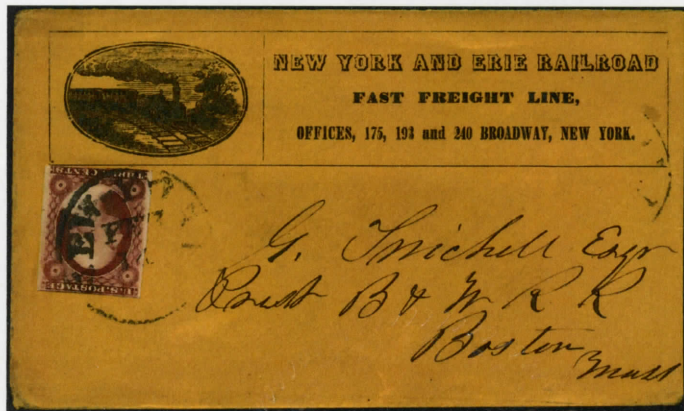 NEW YORK AND ERIE RAILROAD
FAST FREIGHT LINE,
OFFICES, 175, 193 and 240 BROADWAY, NEW YORK.
CENTS
U.S. POSTAGE
G. Twichell Esqr
Prest B & W R R
Boston
Mass